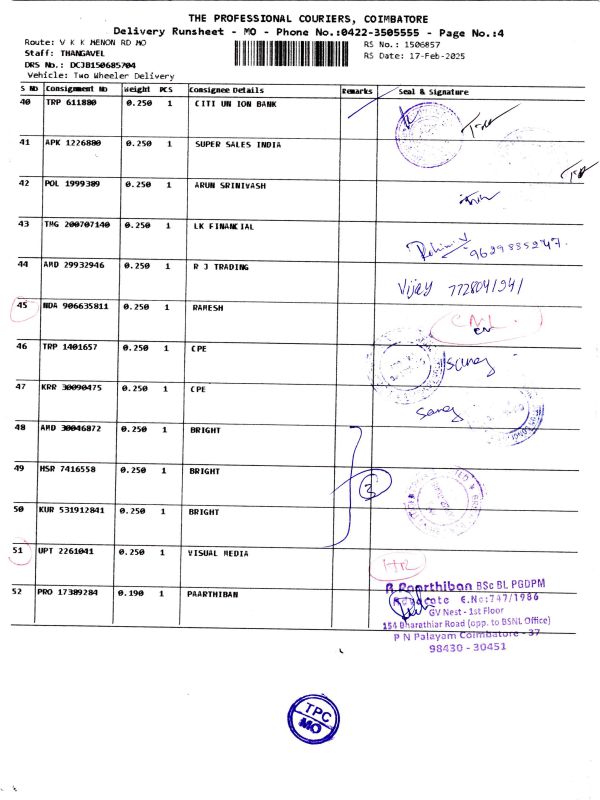 THE PROFESSIONAL COURIERS, COIMBATORE
Delivery Runsheet - MO - Phone No.:0422-3505555 - Page No.:4
Route: V K K MENON RD MO
RS No.: 1506857
Staff: THANGAVEL
RS Date: 17-Feb-2025
DRS No.: DCJB150685704
Vehicle: Two Wheeler Delivery
S No Consignment No Weight PCS Consignee Details Remarks Seal & Signature
40 TRP 611880 0.250 1 CITI UN ION BANK
41 APK 1226880 0.250 1 SUPER SALES INDIA
42 POL 1999389 0.250 1 ARUN SRINIVASH
43 TMG 200707140 0.250 1 LK FINANCIAL
9629835247.
44 AMD 29932946 0.250 1 R J TRADING
Vijay 7728041941
45 NDA 906635811 0.250 1 RAMESH
46 TRP 1401657 0.250 1 CPE
47 KRR 30090475 0.250 1 CPE
48 AMD 30046872 0.250 1 BRIGHT
49 HSR 7416558 0.250 1 BRIGHT
3
50 KUR 531912841 0.250 1 BRIGHT
51 UPT 2261041 0.250 1 VISUAL MEDIA
52 PRO 17389284 0.190 1 PAARTHIBAN
R Paarthiban BSc BL PGDPM
Advocate E.No:747/1986
GV Nest - 1st Floor
154 Bharathiar Road (opp. to BSNL Office)
P N Palayam Coimbatore - 37
98430 - 30451
TPC
MO